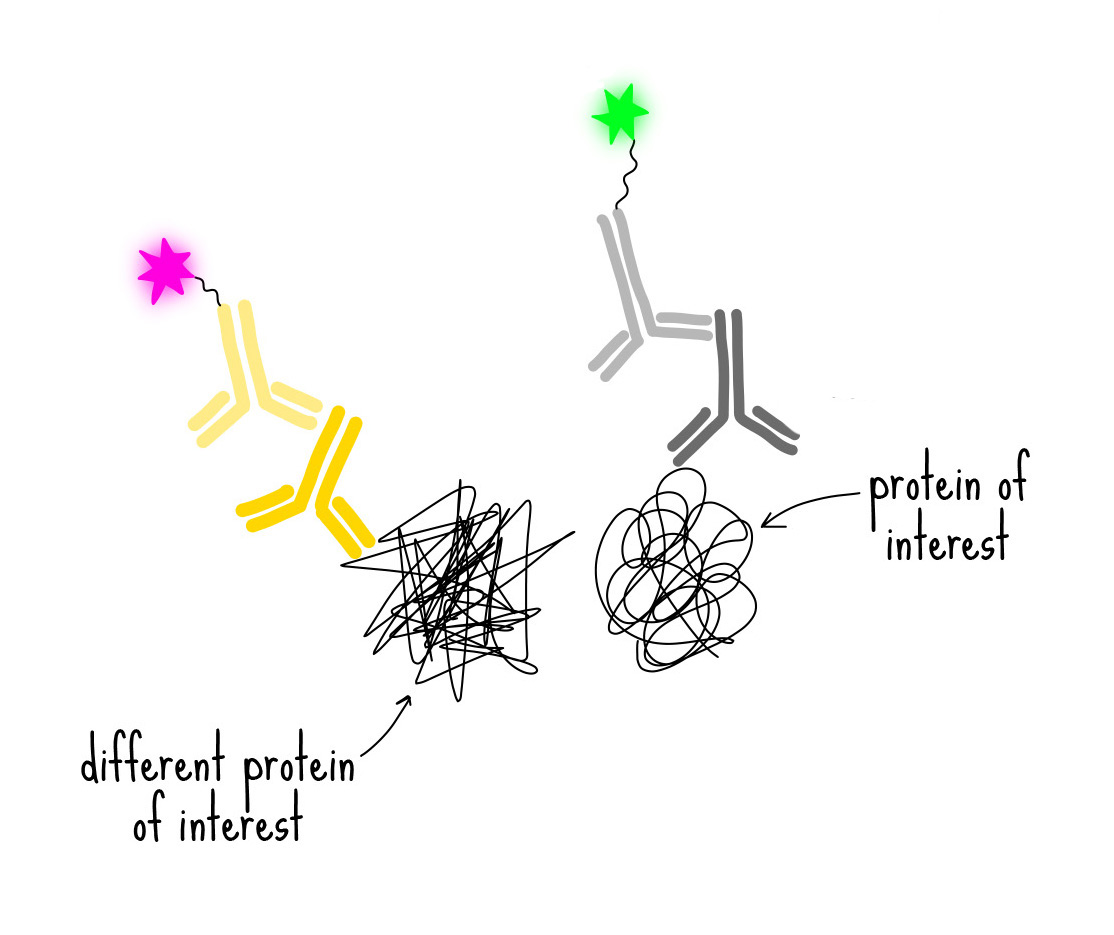 protein of
interest
different protein
of interest